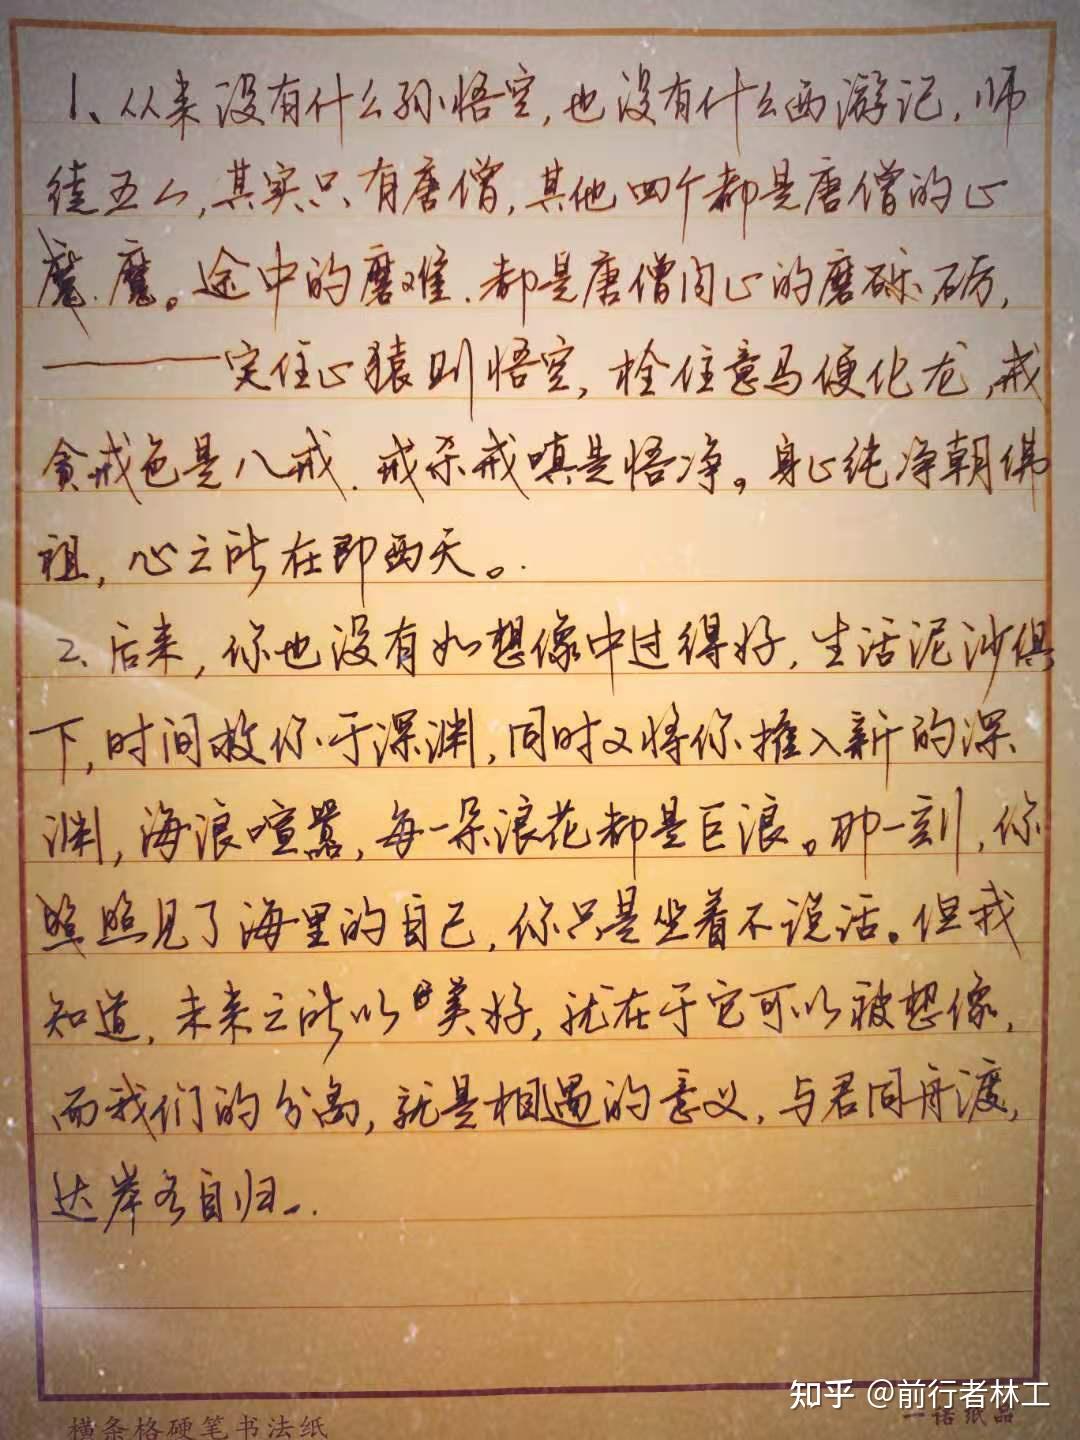 1、从来没有什么孙悟空,也没有什么西游记,师
徒五人,其实只有唐僧,其他四个都是唐僧的心
魔.魔。途中的磨难.都是唐僧内心的磨砾.砺,
——定住心猿则悟空,栓住意马便化龙,戒
贪戒色是八戒.戒杀戒嗔是悟净。身心纯净朝佛
祖,心之所在即西天。.
2、后来,你也没有如想像中过得好,生活泥沙俱
下,时间救你于深渊,同时又将你推入新的深
渊,海浪喧嚣,每一朵浪花都是巨浪。那一刻,你
照照见了海里的自己,你只是坐着不说话。但我
知道,未来之所以美好,就在于它可以被想像,
而我们的分离,就是相遇的意义,与君同舟渡,
达岸各自归..
知乎 @前行者林工
横条格硬笔书法纸
纸品